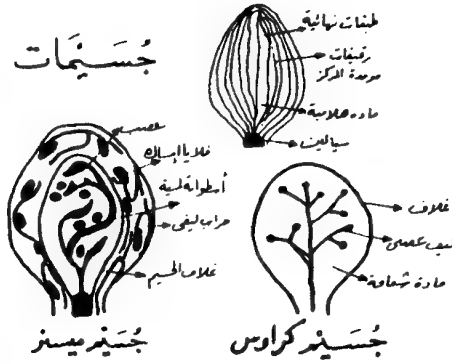 جُسَيْمَات
طبقات نهائية
رقيقات
موحدة المركز
مادة هلامية
سيالين
خلايا إسالة
أسطوانة لمسية
جراب ليفي
غلاف الجسيم
غلاف
ليف عصبي
مادة شفافة
جُسَيْم ميسنر
جُسَيْم كراوس